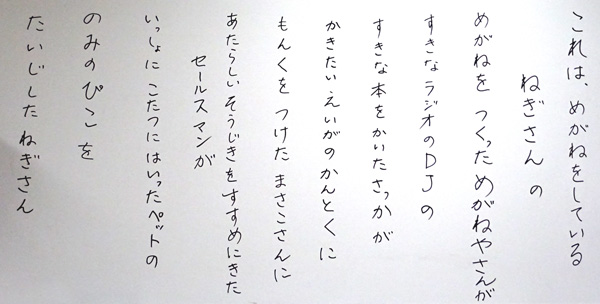 これは、めがねをしている
ねぎさんの
めがねを つくっためがねやさんが
すきな ラジオのDJの
すきな本をかいたさっかが
かきたい えいがのかんとくに
もんくを つけた まさこさんに
あたらしい そうじきを すすめにきた
セールスマンが
いっしょに こたつに はいったペットの
のみのぴこを
たいじした ねぎさん